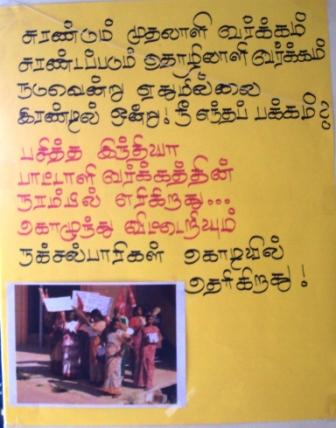 சுரண்டும் முதலாளி வர்க்கம்
சுரண்டப்படும் தொழிலாளி வர்க்கம்
நடுவென்று ஏதுமில்லை
இரண்டில் ஒன்று! நீ எந்தப் பக்கம்?
பசித்த இந்தியா
பாட்டாளி வர்க்கத்தின்
நரம்பில் எரிகிறது...
கொழுந்து விட்டெறியும்
நக்சல்பாரிகள் கொடியில்
தெரிகிறது!